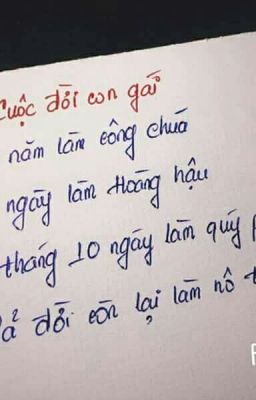 Cuộc đời con gái
năm làm công chúa
ngày làm Hoàng hậu
tháng 10 ngày làm quý
đời còn lại làm nô